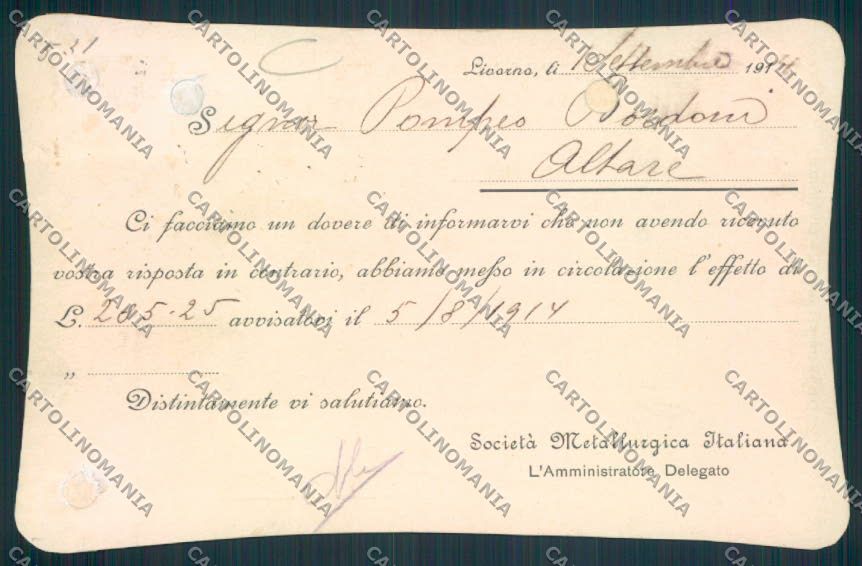 Livorno, li 1 Settembre 1914
Signor Pompeo Bordoni
Altare
Ci facciamo un dovere di informarvi che non avendo ricevuto
vostra risposta in contrario, abbiamo messo in circolazione l'effetto di
L. 285-25 avvisatovi il 5/8/1914
"
Distintamente vi salutiamo.
Società Metallurgica Italiana
L'Amministratore Delegato
CARTOLINOMANIA